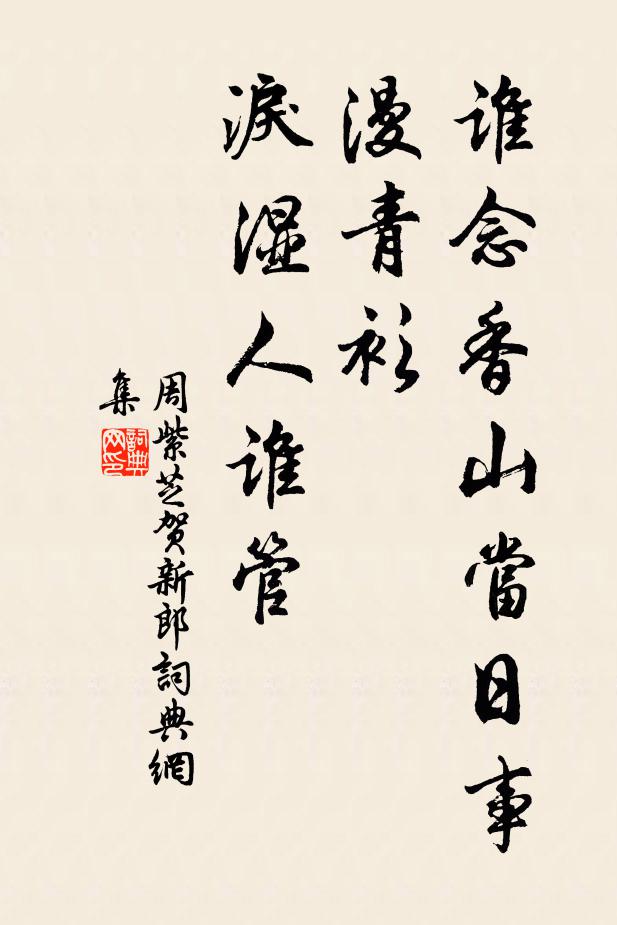 谁念香山當日事
漫青衫
淚濕人谁管
周紫芝贺新郎詞典網
集
詞典
网印